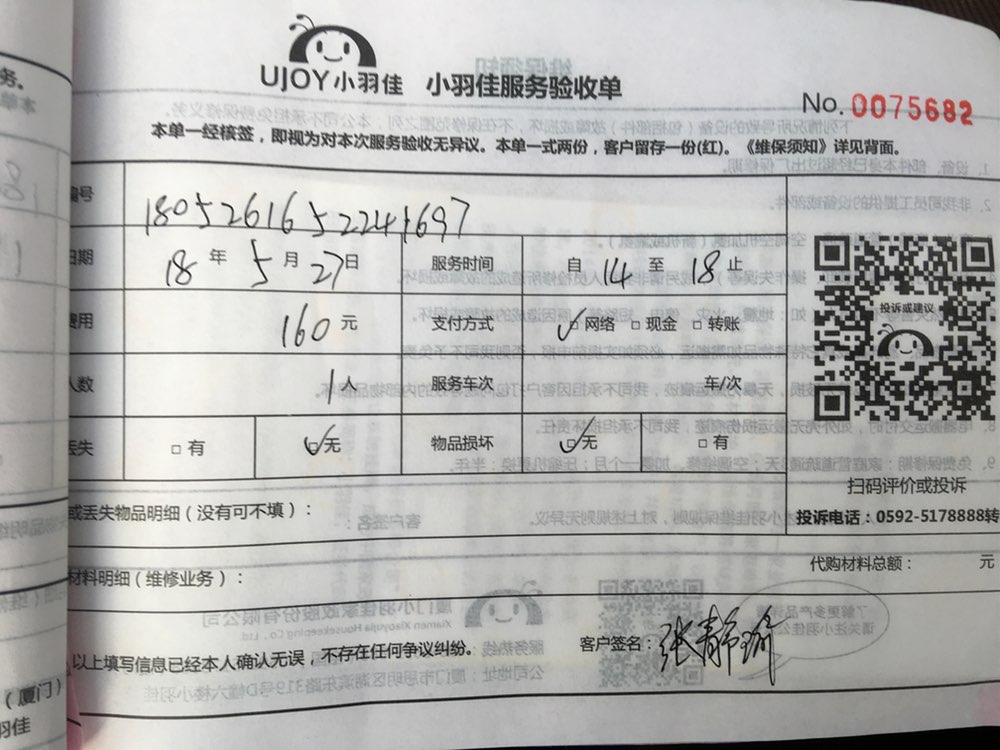 UJOY小羽佳 小羽佳服务验收单
No. 0075682
本单一经核签，即视为对本次服务验收无异议。本单一式两份，客户留存一份(红)。《维保须知》详见背面。
编号 1805261652241697
日期 18 年 5 月 27 日 服务时间 自 14 至 18 止
费用 160 元 支付方式 网络 现金 转账
投诉或建议
人数 1 人 服务车次 车/次
丢失 有 无 物品损坏 无 有
扫码评价或投诉
或丢失物品明细（没有可不填）：
投诉电话：0592-5178888转
材料明细（维修业务）：
代购材料总额： 元
以上填写信息已经本人确认无误，不存在任何争议纠纷。
客户签名：张静瑜
（厦门）
羽佳
务。